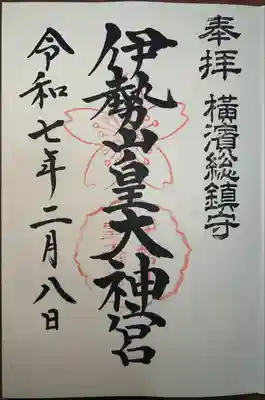 奉拝 横濱総鎮守
伊勢山皇大神宮
令和七年二月八日